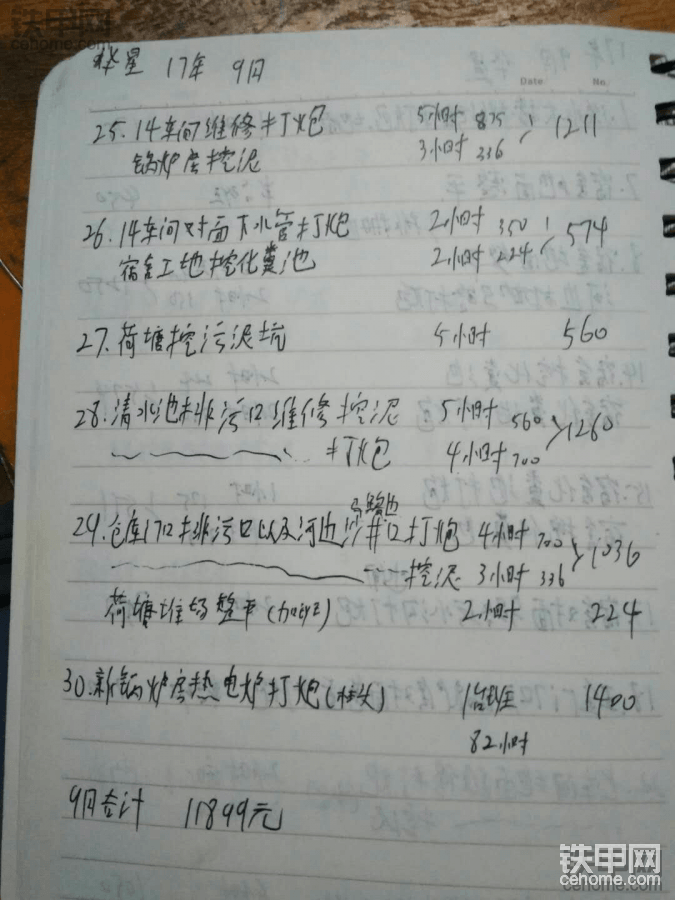 铁甲网
cehome.com
华星 17年 9月
Date. No.
25.14车间维修打炮 5小时 875 1211
锅炉房挖泥 3小时 336
26.14车间对面下水管打炮 2小时 350 574
宿舍工地挖化粪池 2小时 224
27.荷塘挖污泥坑 5小时 560
28.清水池排污口维修挖泥 5小时 560 1260
打炮 4小时 700
马路边
29.仓库门口排污口以及河边沙井口打炮 4小时 700 1036
挖泥 3小时 336
荷塘堆场整平 2小时 224
30.新锅炉房热电炉打炮(桩头) 1台班 1400
82小时
9月合计 11899元
铁甲网
cehome.com